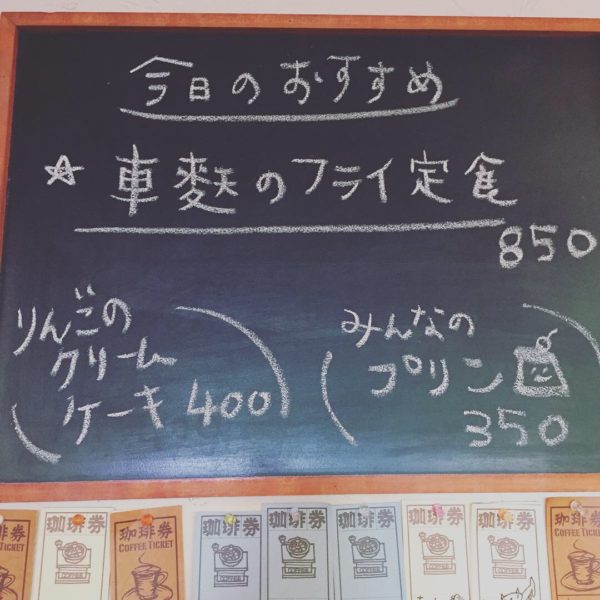 今日のおすすめ
☆ 車麩のフライ定食
850
りんごの
クリーム
ケーキ 400
みんなの
プリン
350
珈琲券
珈琲券
COFFEE TICKET
珈琲券
COFFEE
珈琲券
COFFEE
珈琲券
COFFEE
珈琲券
COFFEE
珈琲券
COFFEE
珈琲券
COFFEE TICKET